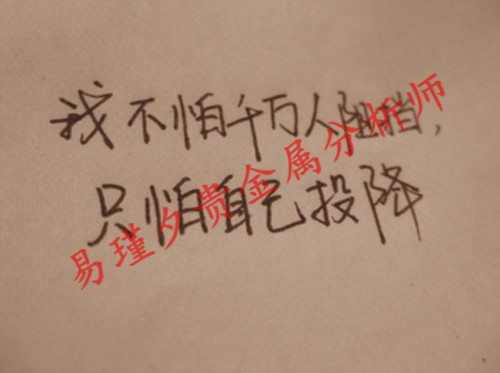 我不怕千万人阻挡，
只怕自己投降
易瑾夕贵金属分析师